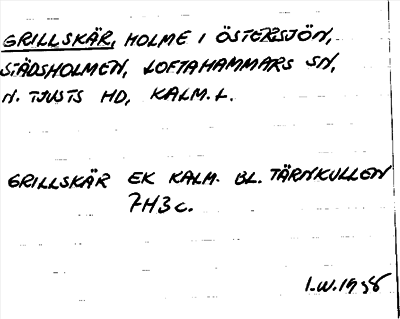 GRILLSKÄR, HOLME I ÖSTERSJÖN,
STÄDSHOLMEN, LOFTAHAMMARS SN,
N. TJUSTS HD, KALM. L.
GRILLSKÄR EK KALM. BL. TÄRNKULLEN
7H3c.
I.W.